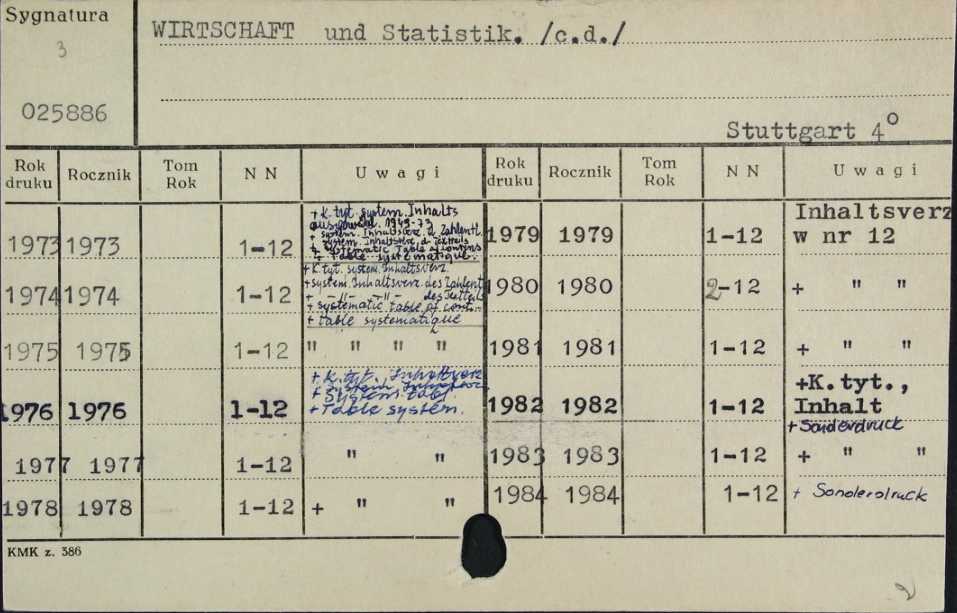 Sygnatura
3
025886
WIRTSCHAFT und Statistik. /c.d./
Stuttgart 4°
Rok druku Rocznik Tom Rok N N Uwagi Rok druku Rocznik Tom Rok N N Uwagi
1973 1973 1-12
+ K. tyt. system. Inhalts
ausgewählt. 1949-73
+ system. Inhaltsverz. d. Zahlentl.
+ system. Inhaltsverz. d. Textteils
+ systematic Table of contens
+ Table systematique.
1974 1974 1-12
+ K. tyt. system. Inhaltsverz.
+ system. Inhaltsverz. des Zahlent
+ -"- -"- des Textteils
+ systematic table of cont.
+ table systematique
1975 1975 1-12 " " " "
1976 1976 1-12
+ K. tyt. Inhaltsverz
+ System. Inhaltsverz.
+ System. tabl.
+ Table systém.
1977 1977 1-12 " "
1978 1978 1-12 + " "
1979 1979 1-12 Inhaltsverz
w nr 12
1980 1980 2-12 + " "
1981 1981 1-12 + " "
1982 1982 1-12 +K.tyt.,
Inhalt
+ Sonderdruck
1983 1983 1-12 + " "
1984 1984 1-12 + Sonderdruck
KMK z. 386